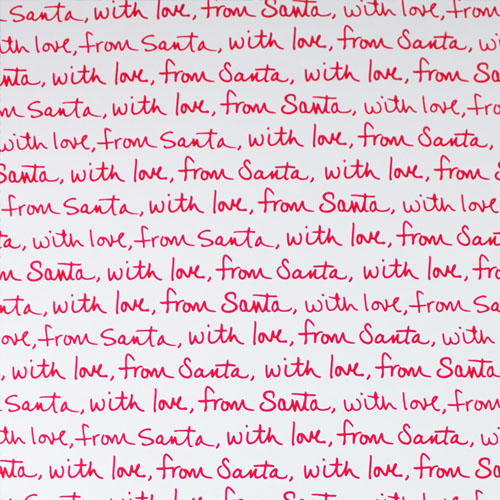 Santa, with love, from Santa, with love, from
th love, from Santa, with love, from Santa, wi
nta, with love, from Santa, with love, from Sa
m Santa, with love, from Santa, with love, fr
with love, from Santa, with love, from Santa,
Santa, with love, from Santa, with love, from
from Santa, with love, from Santa, with love
ta, with love, from Santa, with love, from San
m Santa, with love, from Santa, with love, fr
nta, with love, from Santa, with love, from Sa
ove, from Santa, with love, from Santa, with
, with love, from Santa, with love, from Santa
Santa, with love, from Santa, with love, from
th love, from Santa, with love, from Santa, w
nta, with love, from Santa, with love, from Sa
from Santa, with love, from Santa, with love,